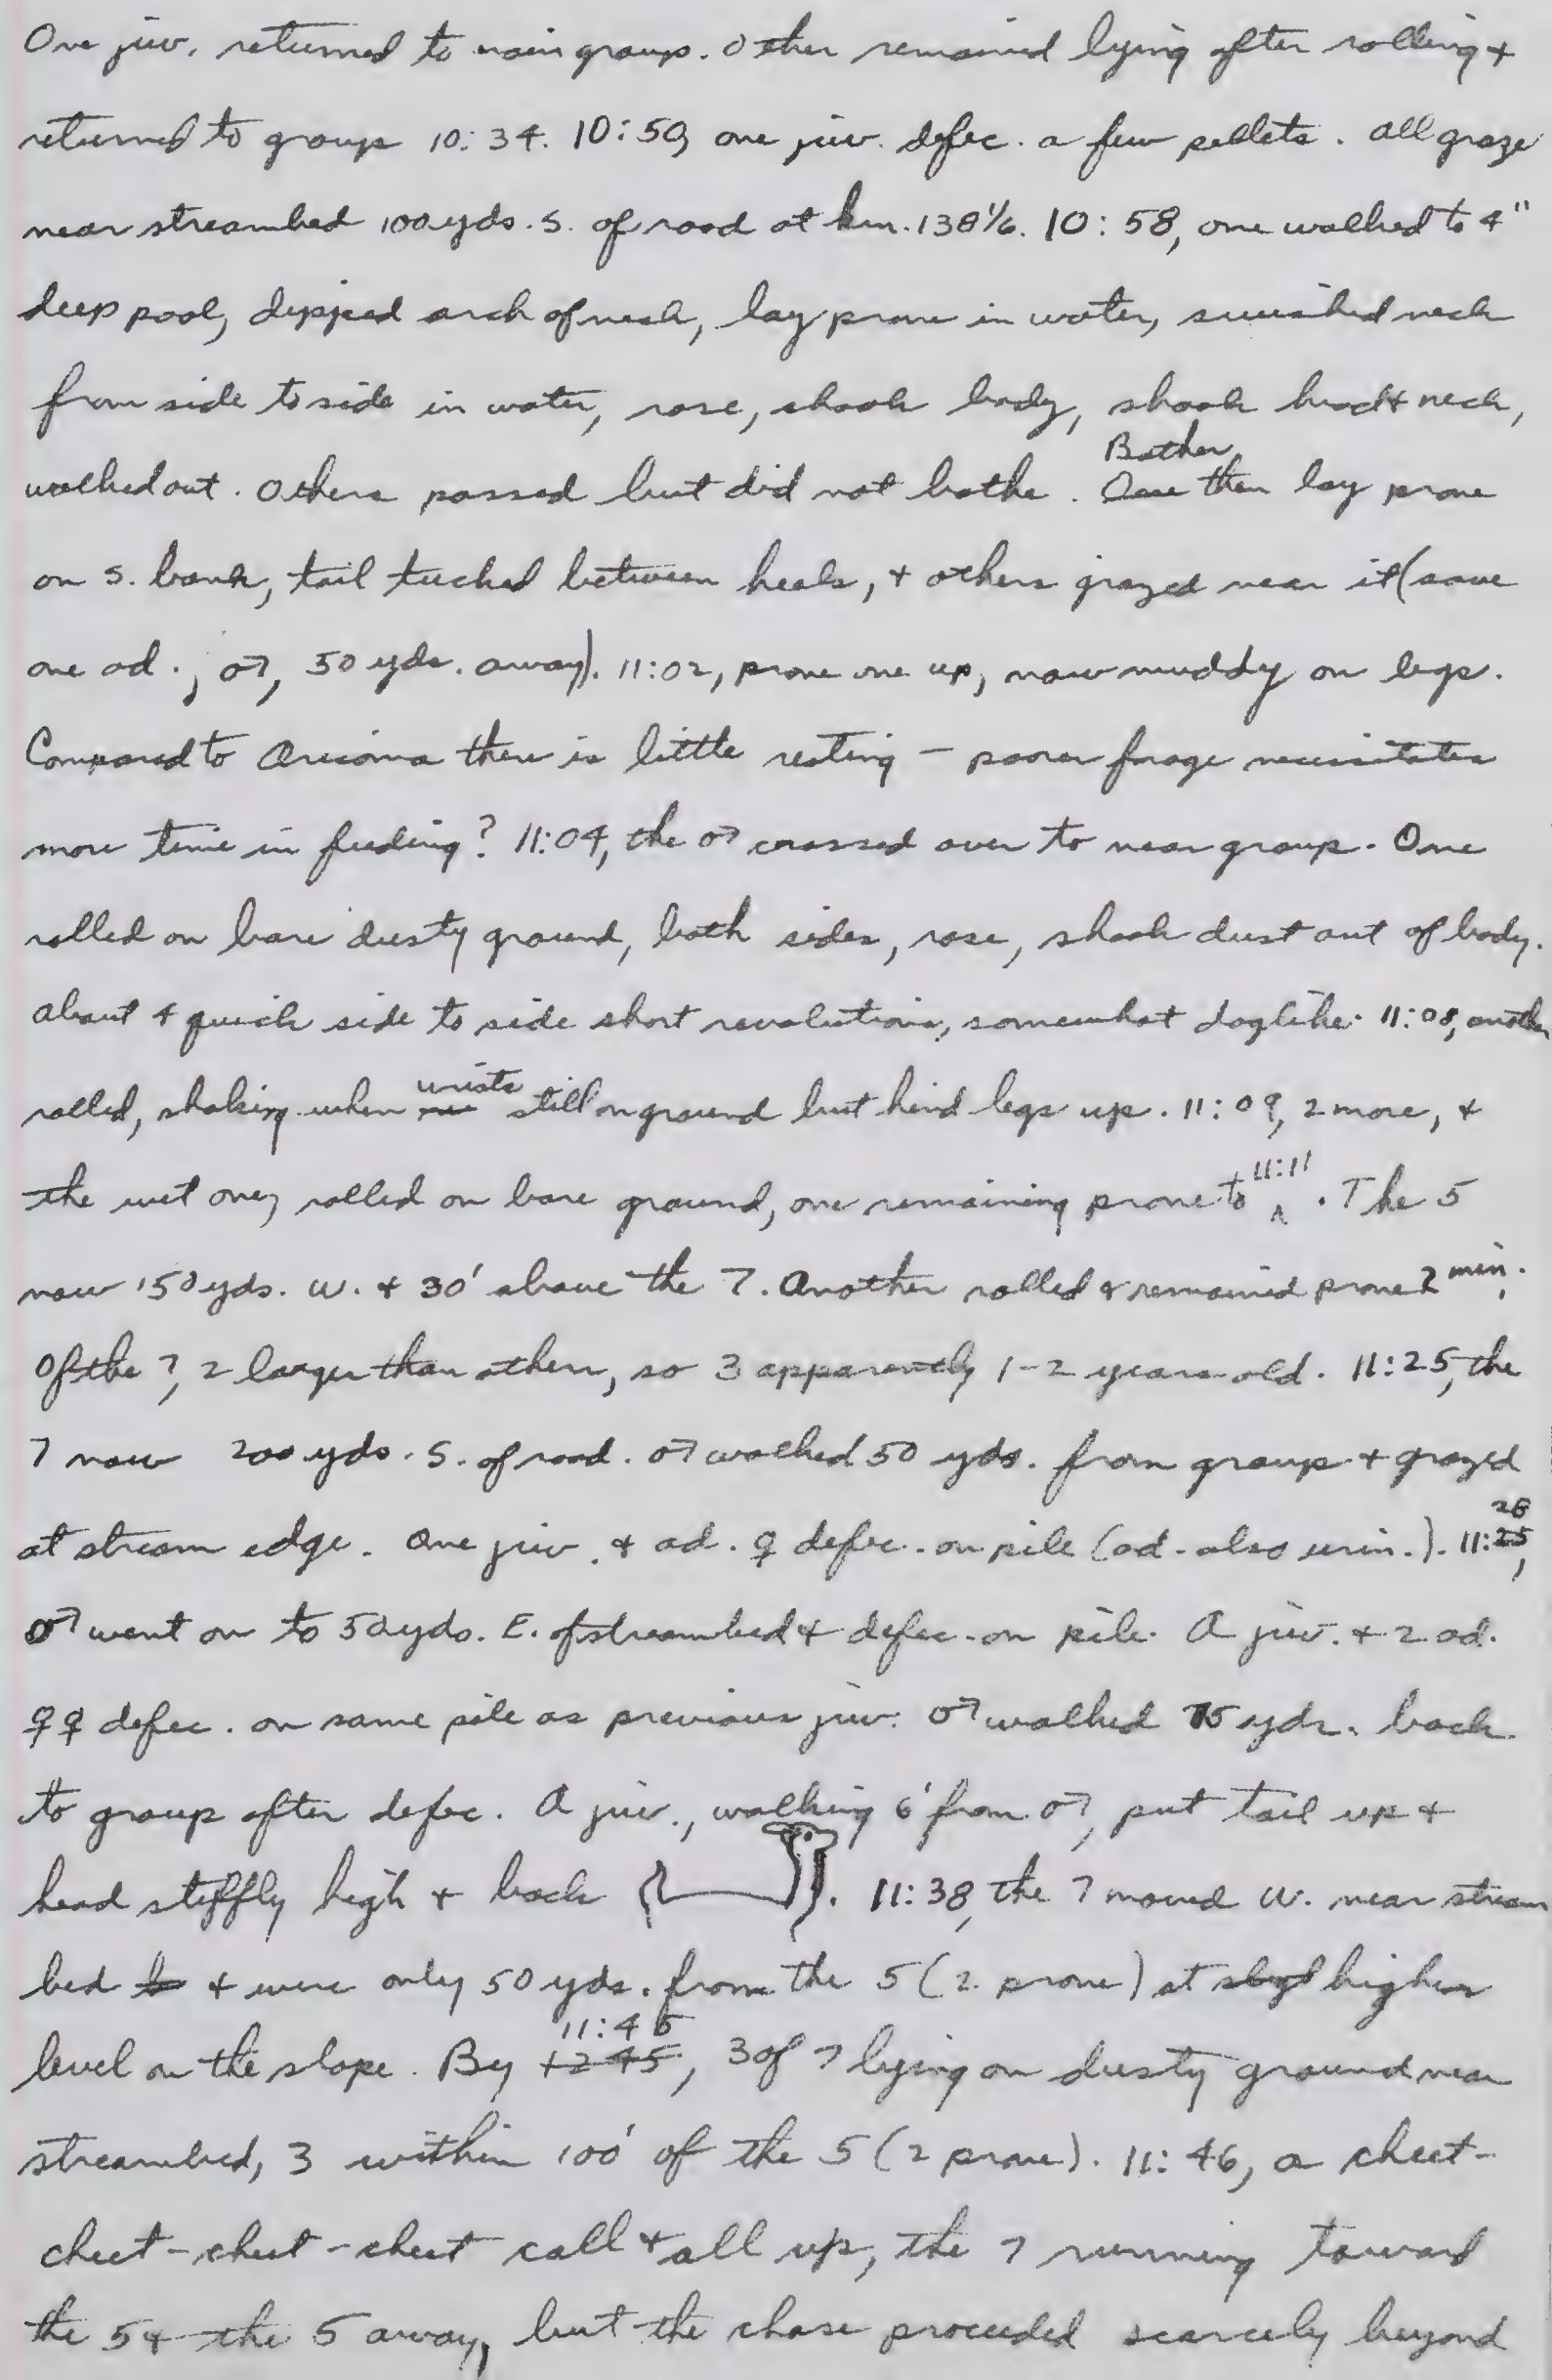 One juv. returned to main group. Other remained lying after rolling +
returned to group 10:34. 10:50, one juv. defec. a few pellets. All graze
near streambed 100 yds. S. of road at km. 138 1/6. 10:58, one walked to 4"
deep pool, dipped arch of neck, lay prone in water, swished neck
from side to side in water, rose, shook body, shook head + neck,
walked out. Others passed but did not bathe. Bather then lay prone
on S. bank, tail tucked between heels, + others grazed near it (save
one ad., ♂, 50 yds. away). 11:02, prone one up, now muddy on legs.
Compared to Aricoma there is little resting — poorer forage necessitates
more time in feeding? 11:04, the ♂ crossed over to near group. One
rolled on bare dusty ground, both sides, rose, shook dust out of body.
about 4 quick side to side short revolutions, somewhat doglike. 11:08, another
rolled, shaking when wrists still on ground but hind legs up. 11:09, 2 more, +
the wet one, rolled on bare ground, one remaining prone to 11:11. The 5
now 150 yds. W. + 30' above the 7. Another rolled + remained prone 2 min.
Of the 7, 2 larger than others, so 3 apparently 1-2 years old. 11:25, the
7 now 200 yds. S. of road. ♂ walked 50 yds. from group + grazed
at stream edge. One juv. + ad. ♀ defec. on pile (ad. also urin.). 11:28,
♂ went on to 50 yds. E. of streambed + defec. on pile. A juv. + 2 ad.
♀♀ defec. on same pile as previous juv. ♂ walked 75 yds. back
to group after defec. A juv., walking 6' from ♂, put tail up +
head stiffly high + back. 11:38, the 7 moved W. near stream
bed + were only 50 yds. from the 5 (2 prone) at higher
level on the slope. By 11:45, 3 of 7 lying on dusty ground near
streambed, 3 within 100' of the 5 (2 prone). 11:46, a cheet-
cheet-cheet-cheet call + all up, the 7 running toward
the 5 + the 5 away, but the chase proceeded scarcely beyond